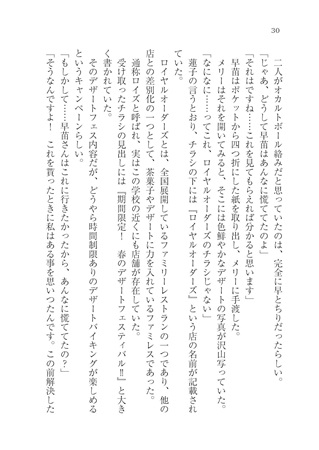 30
二人がオカルトボール絡みだと思っていたのは、完全に早とちりだったらしい。
「じゃあ、どうして早苗はあんなに慌ててたのよ」
「それはですね……これを見てもらえれば分かると思います」
早苗はポケットから四つ折にした紙を取り出し、メリーに手渡した。
メリーはそれを開いてみると、そこには色鮮やかなデザートの写真が沢山写っていた。
「なになに……ってこれ、ロイヤルオーダーズのチラシじゃない」
蓮子の言うとおり、チラシの下には『ロイヤルオーダーズ』という店の名前が記載され
ていた。
ロイヤルオーダーズとは、全国展開しているファミリーレストランの一つであり、他の
店との差別化の一つとして、茶菓子やデザートに力を入れているファミレスであった。
通称ロイズと呼ばれ、実はこの学校の近くにも店舗が存在していた。
受け取ったチラシの見出しには『期間限定！　春のデザートフェスティバル‼』と大き
く書かれていた。
そのデザートフェス内容だが、どうやら時間制限ありのデザートバイキングが楽しめる
というキャンペーンらしい。
「もしかして……早苗さんはこれに行きたかったから、あんなに慌ててたの？」
「そうなんですよ！　これを買ったときに私はある事を思いついたんです。この前解決した